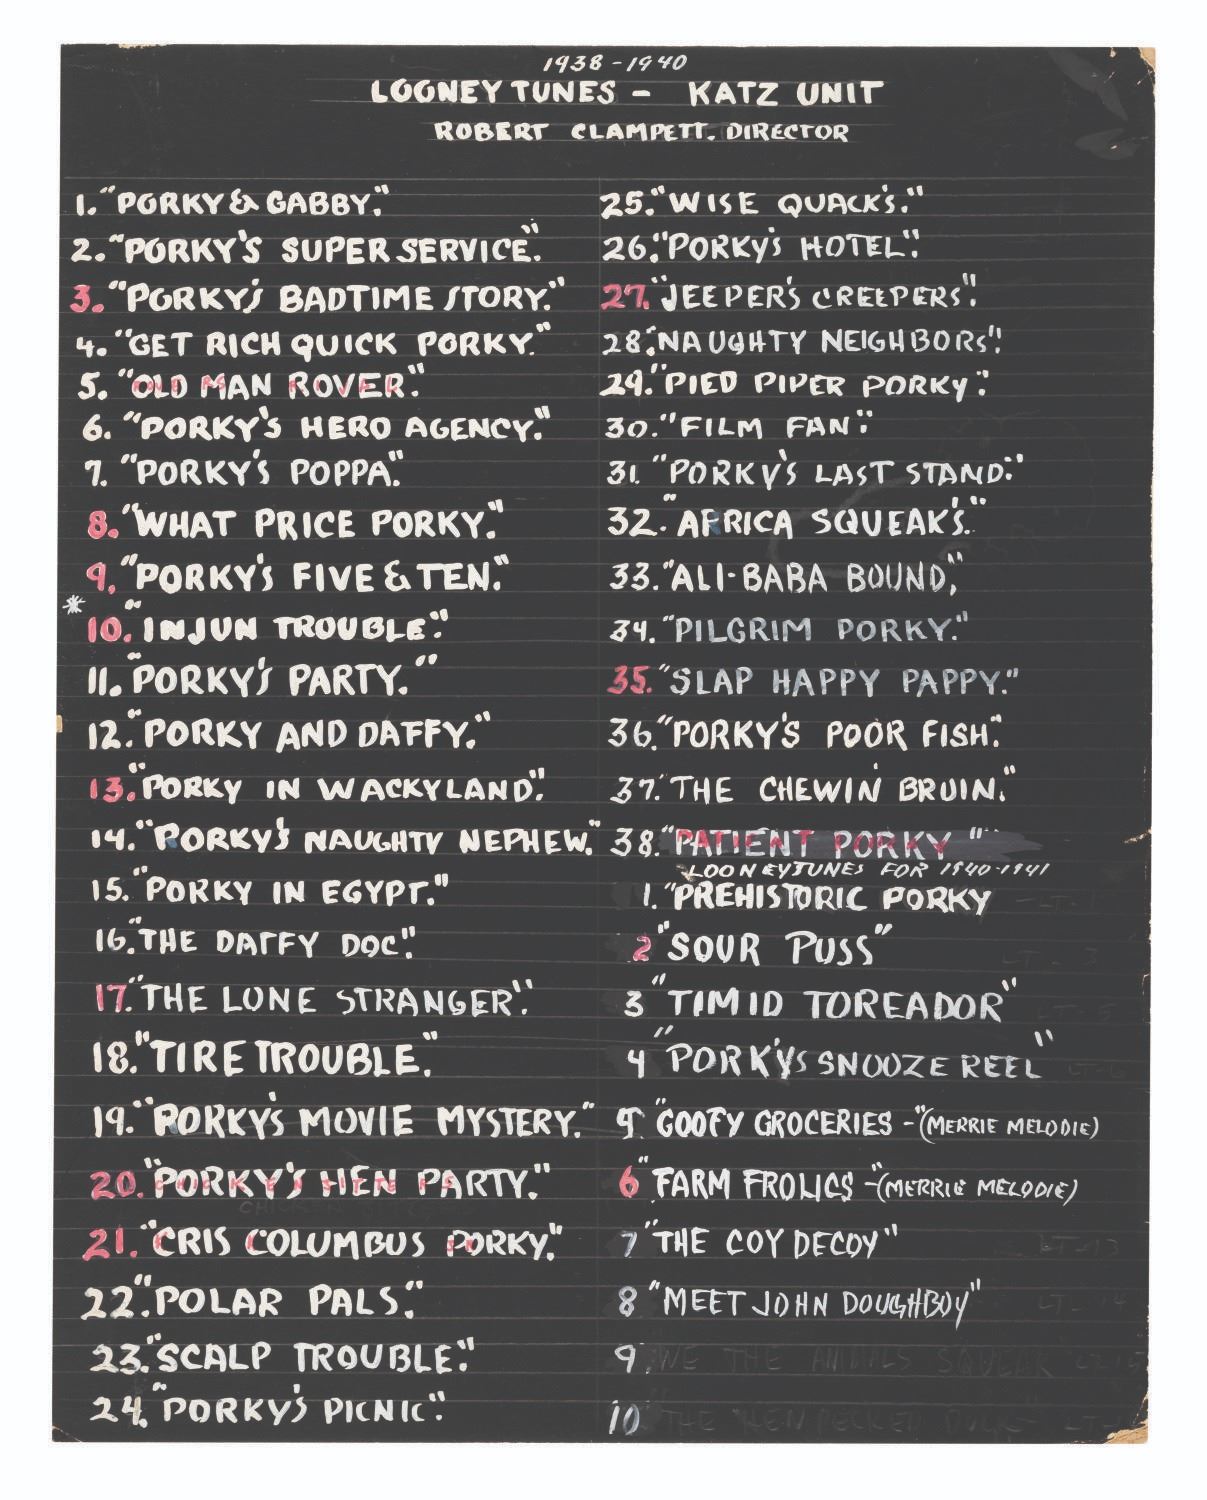 1938-1940
LOONEY TUNES - KATZ UNIT
ROBERT CLAMPETT. DIRECTOR
1. "PORKY & GABBY."
2. "PORKY'S SUPER SERVICE."
3. "PORKY'S BADTIME STORY."
4. "GET RICH QUICK PORKY."
5. "OLD MAN ROVER."
6. "PORKY'S HERO AGENCY."
7. "PORKY'S POPPA."
8. "WHAT PRICE PORKY."
9. "PORKY'S FIVE & TEN."
* 10. "INJUN TROUBLE."
11. "PORKY'S PARTY."
12. "PORKY AND DAFFY."
13. "PORKY IN WACKYLAND."
14. "PORKY'S NAUGHTY NEPHEW."
15. "PORKY IN EGYPT."
16. "THE DAFFY DOC."
17. "THE LONE STRANGER".
18. "TIRE TROUBLE."
19. "PORKY'S MOVIE MYSTERY."
20. "PORKY'S HEN PARTY."
21. "CRIS COLUMBUS PORKY."
22. "POLAR PALS."
23. "SCALP TROUBLE."
24. "PORKY'S PICNIC".
25. "WISE QUACK'S."
26. "PORKY'S HOTEL".
27. "JEEPER'S CREEPERS".
28. "NAUGHTY NEIGHBORS".
29. "PIED PIPER PORKY".
30. "FILM FAN".
31. "PORKY'S LAST STAND."
32. "AFRICA SQUEAK'S."
33. "ALI-BABA BOUND."
34. "PILGRIM PORKY."
35. "SLAP HAPPY PAPPY."
36. "PORKY'S POOR FISH."
37. "THE CHEWIN' BRUIN."
38. "PATIENT PORKY"
LOONEY TUNES FOR 1940-1941
1. "PREHISTORIC PORKY
2 "SOUR PUSS"
3 "TIMID TOREADOR"
4 "PORKY'S SNOOZE REEL"
5 "GOOFY GROCERIES -"(MERRIE MELODIE)
6 "FARM FROLICS -"(MERRIE MELODIE)
7 "THE COY DECOY"
8 "MEET JOHN DOUGHBOY"
9 WE THE ANIMALS SQUEAK
10 "THE HEN PECKED DUCK"